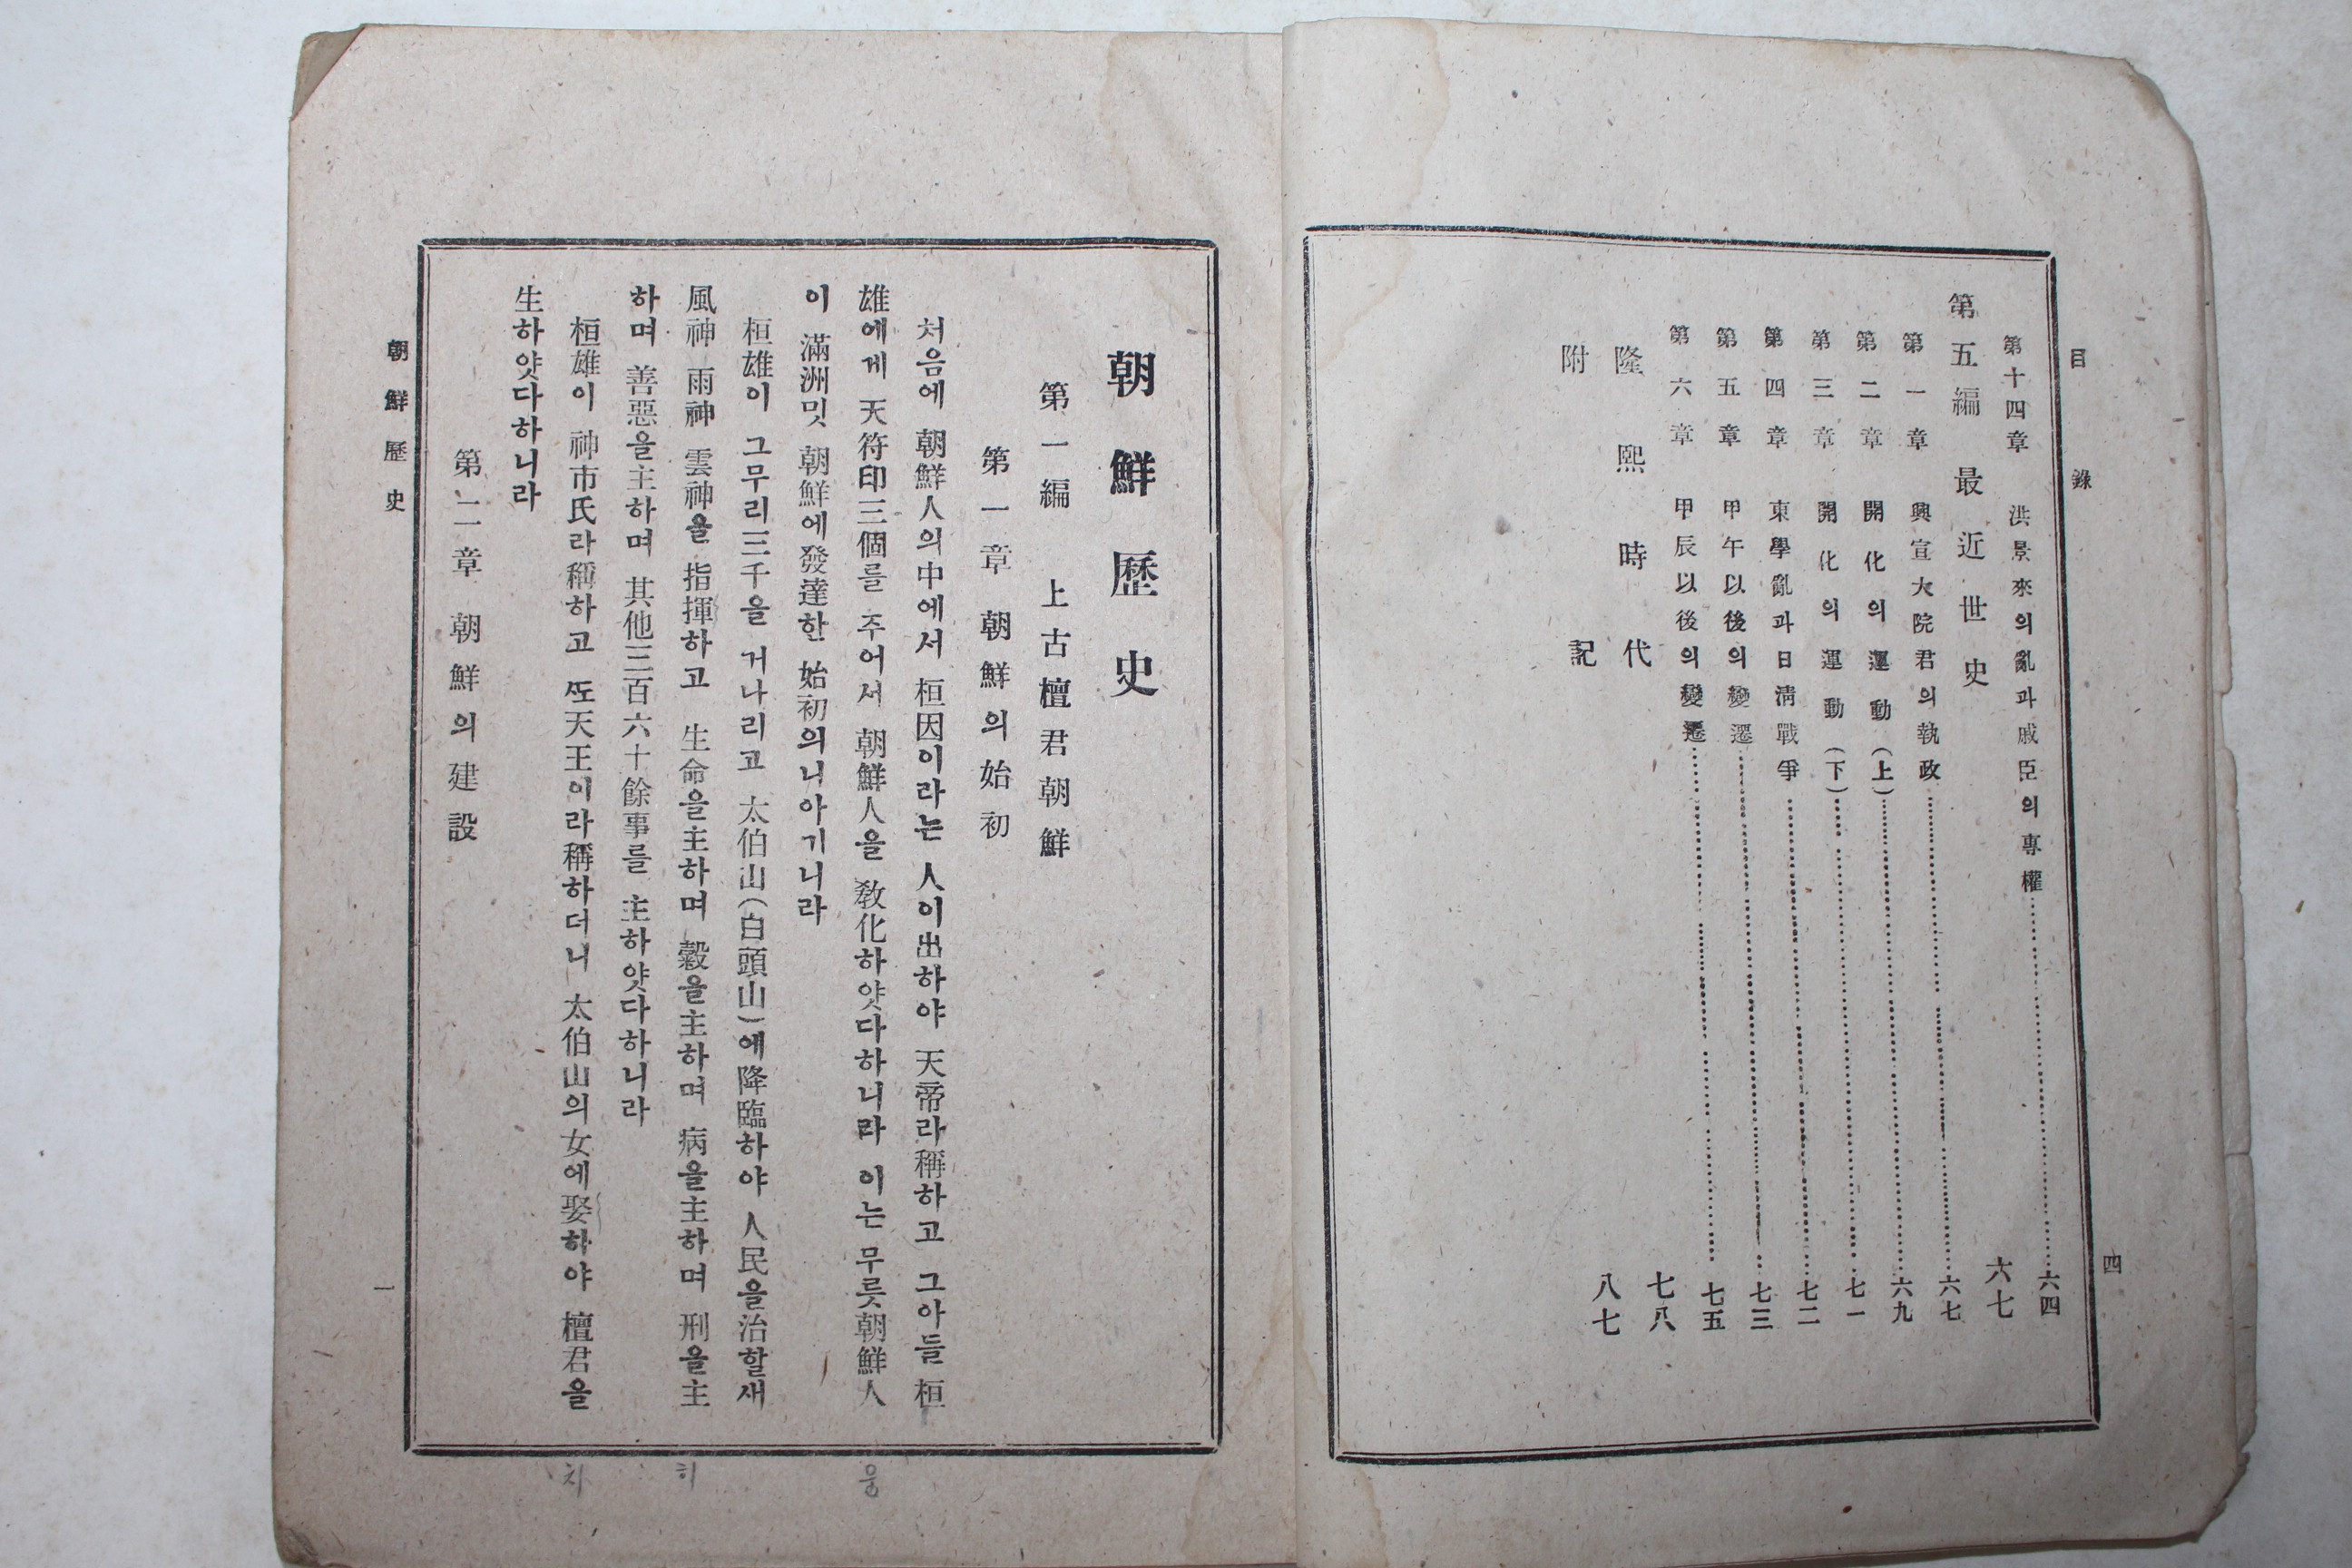 目錄
四
第十四章 洪景來의亂과戚臣의專權……六四
第五編 最近世史 六七
第一章 興宣大院君의執政……六七
第二章 開化의運動(上)……六九
第三章 開化의運動(下)……七一
第四章 東學亂과日淸戰爭……七二
第五章 甲午以後의變遷……七三
第六章 甲辰以後의變遷……七五
隆熙時代 七八
附記 八七
朝鮮歷史
第一編 上古檀君朝鮮
第一章 朝鮮의始初
처음에 朝鮮人의中에서 桓因이라는 人이出하야 天帝라稱하고 그아들 桓
雄에게 天符印三個를 주어서 朝鮮人을 敎化하얏다하니라 이는 무릇朝鮮人
이 滿洲밋 朝鮮에發達한 始初의니아기니라
桓雄이 그무리三千을 거나리고 太伯山(白頭山)에降臨하야 人民을治할새
風神 雨神 雲神을 指揮하고 生命을主하며 穀을主하며 病을主하며 刑을主
하며 善惡을主하며 其他三百六十餘事를 主하얏다하니라
桓雄이 神市氏라稱하고 ᄯᅩ天王이라稱하더니 太伯山의女에娶하야 檀君을
生하얏다하니라
第二章 朝鮮의建設
朝鮮歷史
一
웅
히
차